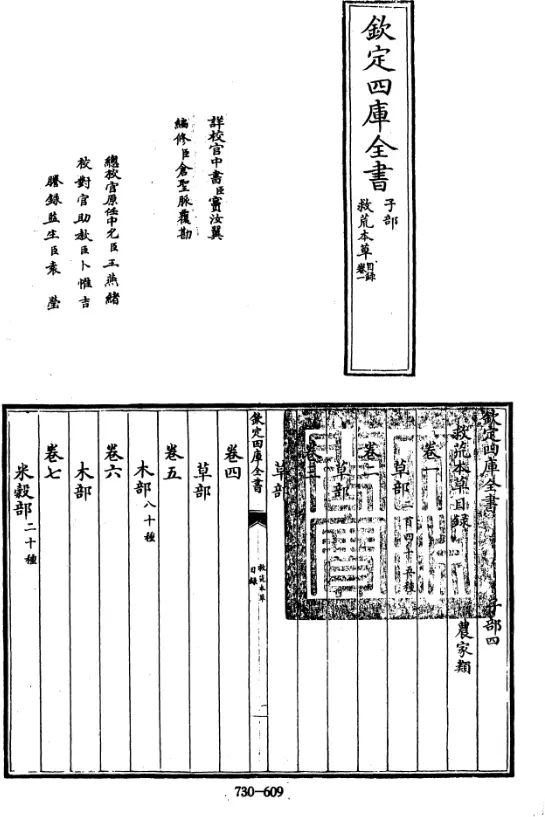 欽定四庫全書
子部
救荒本草
目錄
卷一
詳校官中書臣竇汝翼
編修臣倉聖脈覆勘
總校官原任中允臣王燕緒
校對官助教臣卜惟吉
謄錄監生臣袁瑩
欽定四庫全書
子部四
救荒本草目錄
農家類
卷一
草部二百四十五種
卷二
草部
卷三
草部
欽定四庫全書
救荒本草
目錄
卷四
草部
卷五
木部八十種
卷六
木部
卷七
米穀部二十種
730-609